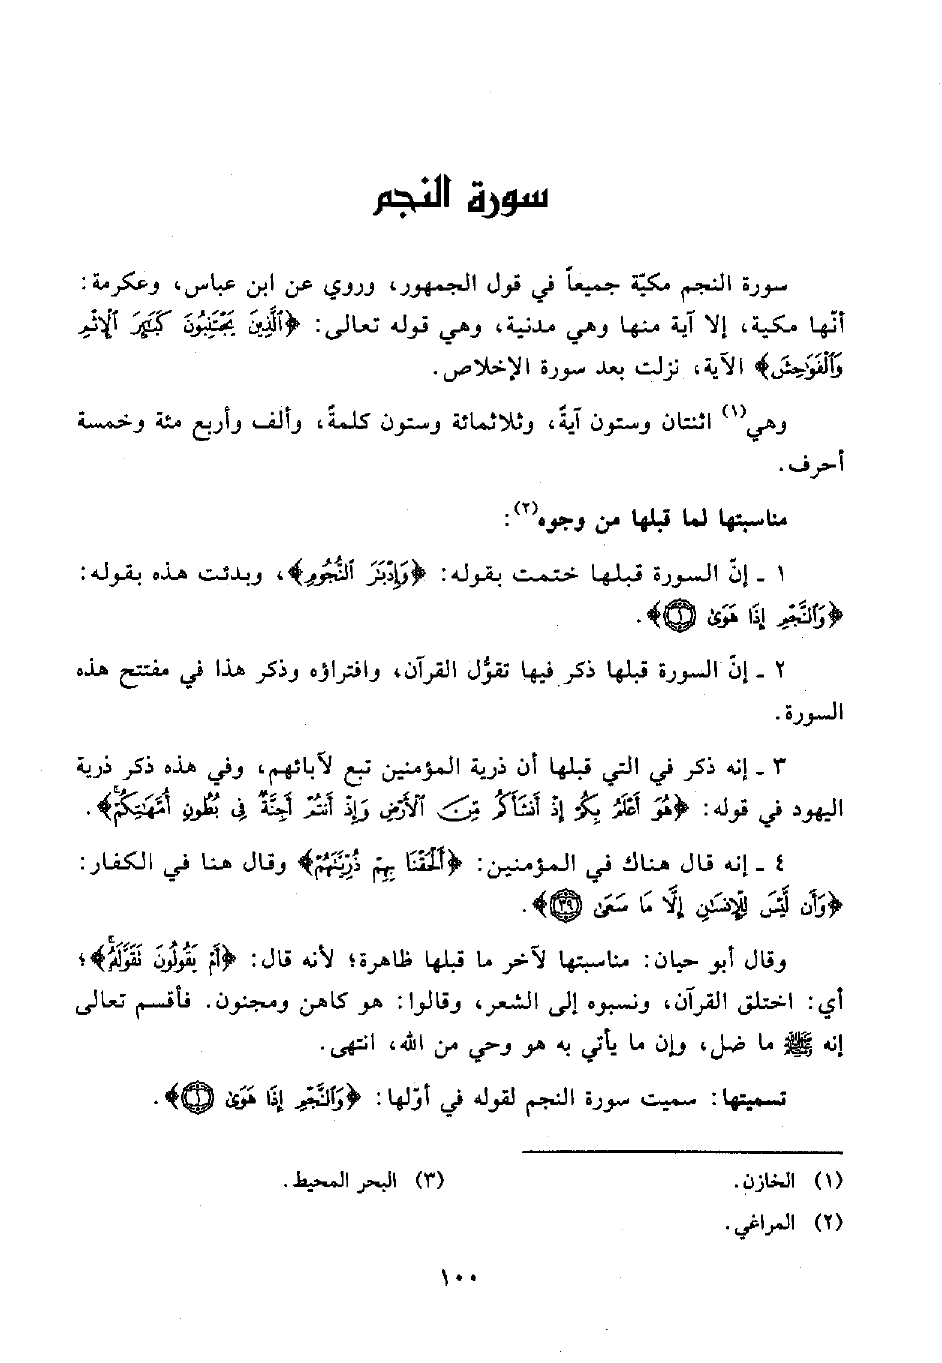 سورة النجم
سورة النجم مكيّة جميعاً في قول الجمهور، وروي عن ابن عباس، وعكرمة:
أنّها مكية، إلا آية منها وهي مدنية، وهي قوله تعالى: ﴿ٱلَّذِينَ يَجْتَنِبُونَ كَبَٰٓئِرَ ٱلْإِثْمِ
وَٱلْفَوَٰحِشَ﴾ الآية، نزلت بعد سورة الإخلاص.
وهي(١) اثنتان وستون آيةً، وثلاثمائة وستون كلمةً، وألف وأربع مئة وخمسة
أحرف.
مناسبتها لما قبلها من وجوه(٢):
١ - إنّ السورة قبلها ختمت بقوله: ﴿وَإِدْبَٰرَ ٱلنُّجُومِ﴾، وبدئت هذه بقوله:
﴿وَٱلنَّجْمِ إِذَا هَوَىٰ ١﴾.
٢ - إنّ السورة قبلها ذكر فيها تقوُّل القرآن، وافتراؤه وذكر هذا في مفتتح هذه
السورة.
٣ - إنه ذكر في التي قبلها أن ذرية المؤمنين تبع لآبائهم، وفي هذه ذكر ذرية
اليهود في قوله: ﴿هُوَ أَعْلَمُ بِكُمْ إِذْ أَنشَأَكُم مِّنَ ٱلْأَرْضِ وَإِذْ أَنتُمْ أَجِنَّةٌ فِى بُطُونِ أُمَّهَٰتِكُمْ﴾.
٤ - إنه قال هناك في المؤمنين: ﴿أَلْحَقْنَا بِهِمْ ذُرِّيَّتَهُمْ﴾ وقال هنا في الكفار:
﴿وَأَن لَّيْسَ لِلْإِنسَٰنِ إِلَّا مَا سَعَىٰ ٣٩﴾.
وقال أبو حيان: مناسبتها لآخر ما قبلها ظاهرة؛ لأنه قال: ﴿أَمْ يَقُولُونَ تَقَوَّلَهُۥ﴾؛
أي: اختلق القرآن، ونسبوه إلى الشعر، وقالوا: هو كاهن ومجنون. فأقسم تعالى
إنه ﷺ ما ضل، وإن ما يأتي به هو وحي من الله، انتهى.
تسميتها: سميت سورة النجم لقوله في أوّلها: ﴿وَٱلنَّجْمِ إِذَا هَوَىٰ ١﴾.
(١) الخازن.
(٢) المراغي.
(٣) البحر المحيط.
١٠٠